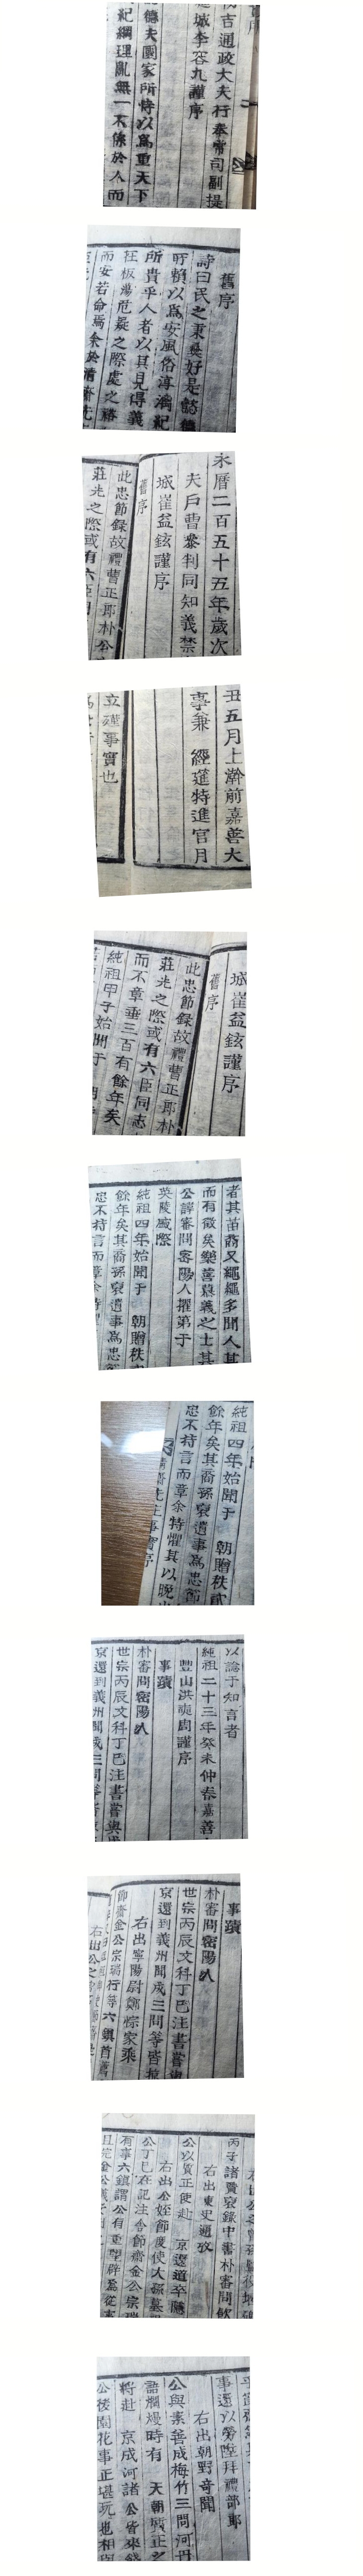 吉通政大夫行奉常司副提
城李容九謹序
德夫國家所恃以爲重天下
紀綱理亂無一不係於人而
舊序
詩曰民之秉彛好是懿德
所賴以爲安風俗淳漓紀
所貴乎人者以其見得義
在板蕩危疑之際處之裕
而安若命焉余於清齋先
永曆二百五十五年歲次
夫戶曹參判同知義禁
城崔益鉉謹序
舊序
此忠節錄故禮曹正郎朴公
莊光之際或有六臣同
丑五月上澣前嘉善大
事兼 經筵特進官月
立殣事實也
城崔益鉉謹序
舊序
此忠節錄故禮曹正郎朴
莊光之際或有六臣同志
而不章垂三百有餘年矣
純祖甲子始聞于 朝
者其苗裔又繩繩多聞人其
而有徵矣樂善慕義之士其
公諱審問密陽人擢第于
英陵盛際
純祖四年始聞于 朝贈秩
餘年矣其裔孫裒遺事爲忠節
忠不待言而章余特懼
純祖四年始聞于 朝贈秩貳
餘年矣其裔孫裒遺事爲忠節
忠不待言而章余特懼其以晚
清齋先生事實序
以諗于知言者
純祖二十三年癸未仲春嘉善
豐山洪奭周謹序
事蹟
朴審問密陽人
世宗丙辰文科丁巳注書嘗與
京還到義州聞成三問等皆
事蹟
朴審問密陽人
世宗丙辰文科丁巳注書嘗
京還到義州聞成三問等皆
右出寧陽尉鄭悰家乘
節齋金公宗瑞行等六鎭首
丙子諸賢裒錄中書朴審問飮
右出東史週攷
公以質正使赴 京還道卒
右出公姪節度使大孫墓
公丁巳在記注合節齋金公宗瑞
有事六鎭謂公有重望辟爲從
事還以勞陞拜禮部郞
右出朝野奇聞
公與素善成梅竹三問河丹
語爛熳時有 天朝質正之
將赴 京成河諸公皆來餞
公後園花事正堪玩